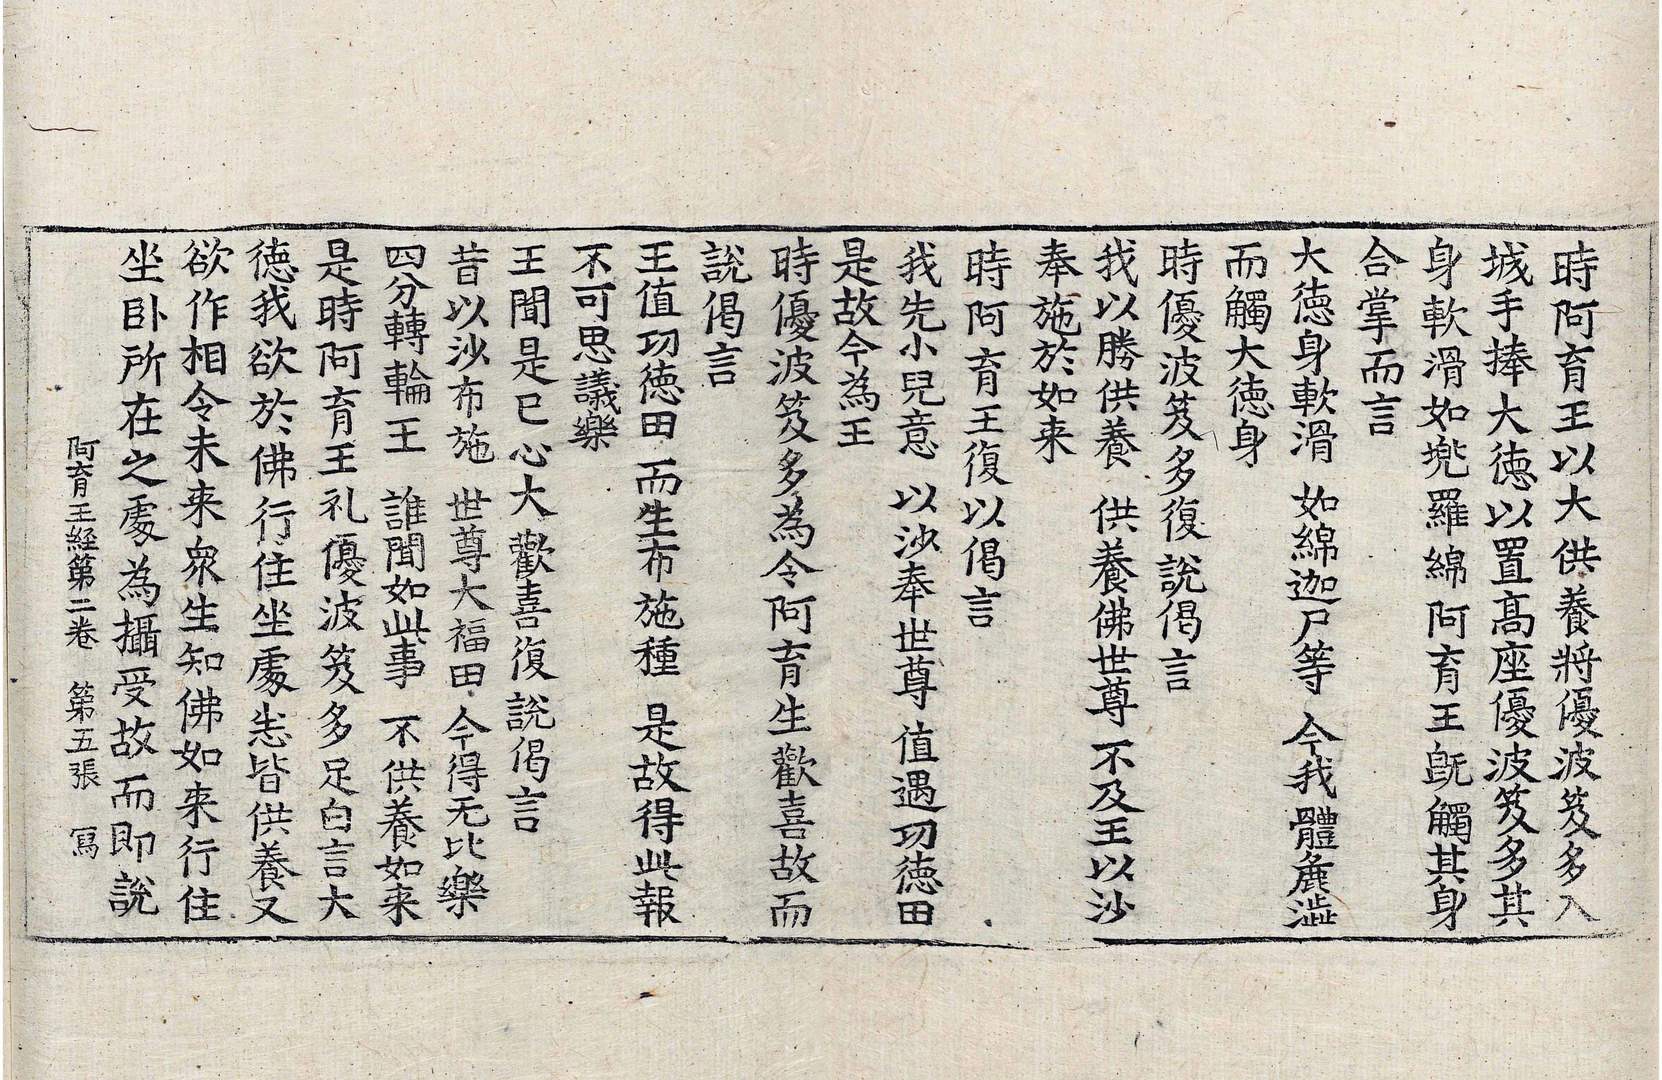 時阿育王以大供養將優波笈多入
城手捧大徳以置髙座優波笈多其
身軟滑如兠羅綿阿育王旣觸其身
合掌而言
大徳身軟滑　如綿迦尸等　今我體麁澁
而觸大徳身
時優波笈多復說偈言
我以勝供養　供養佛世尊　不及王以沙
奉施於如来
時阿育王復以偈言
我先小兒意　以沙奉世尊　值遇功徳田
是故今為王
時優波笈多為令阿育生歡喜故而
說偈言
王值功徳田　而生布施種　是故得此報
不可思議樂
王聞是已心大歡喜復說偈言
昔以沙布施　世尊大福田　今得无比樂
四分轉輪王　誰聞如此事　不供養如来
是時阿育王礼優波笈多足白言大
徳我欲於佛行住坐䖏悉皆供養又
欲作相令未来衆生知佛如来行住
坐卧所在之䖏為攝受故而即說
阿育王経第二卷　第五張　寫